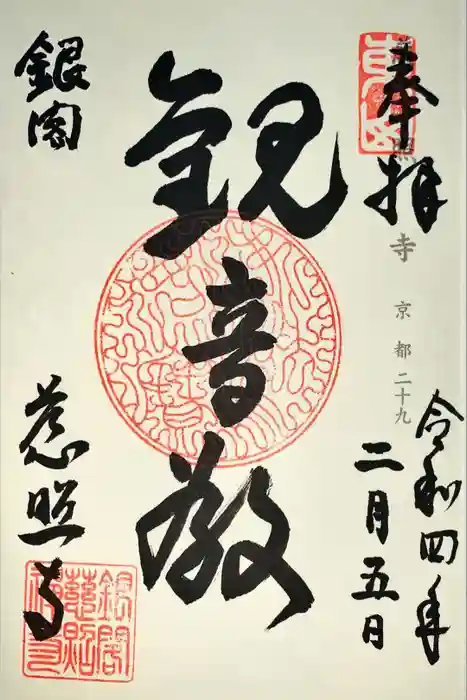 奉拝
照
寺
京都二十九
令和四年
二月五日
観音殿
銀閣
慈照寺
銀閣
慈照